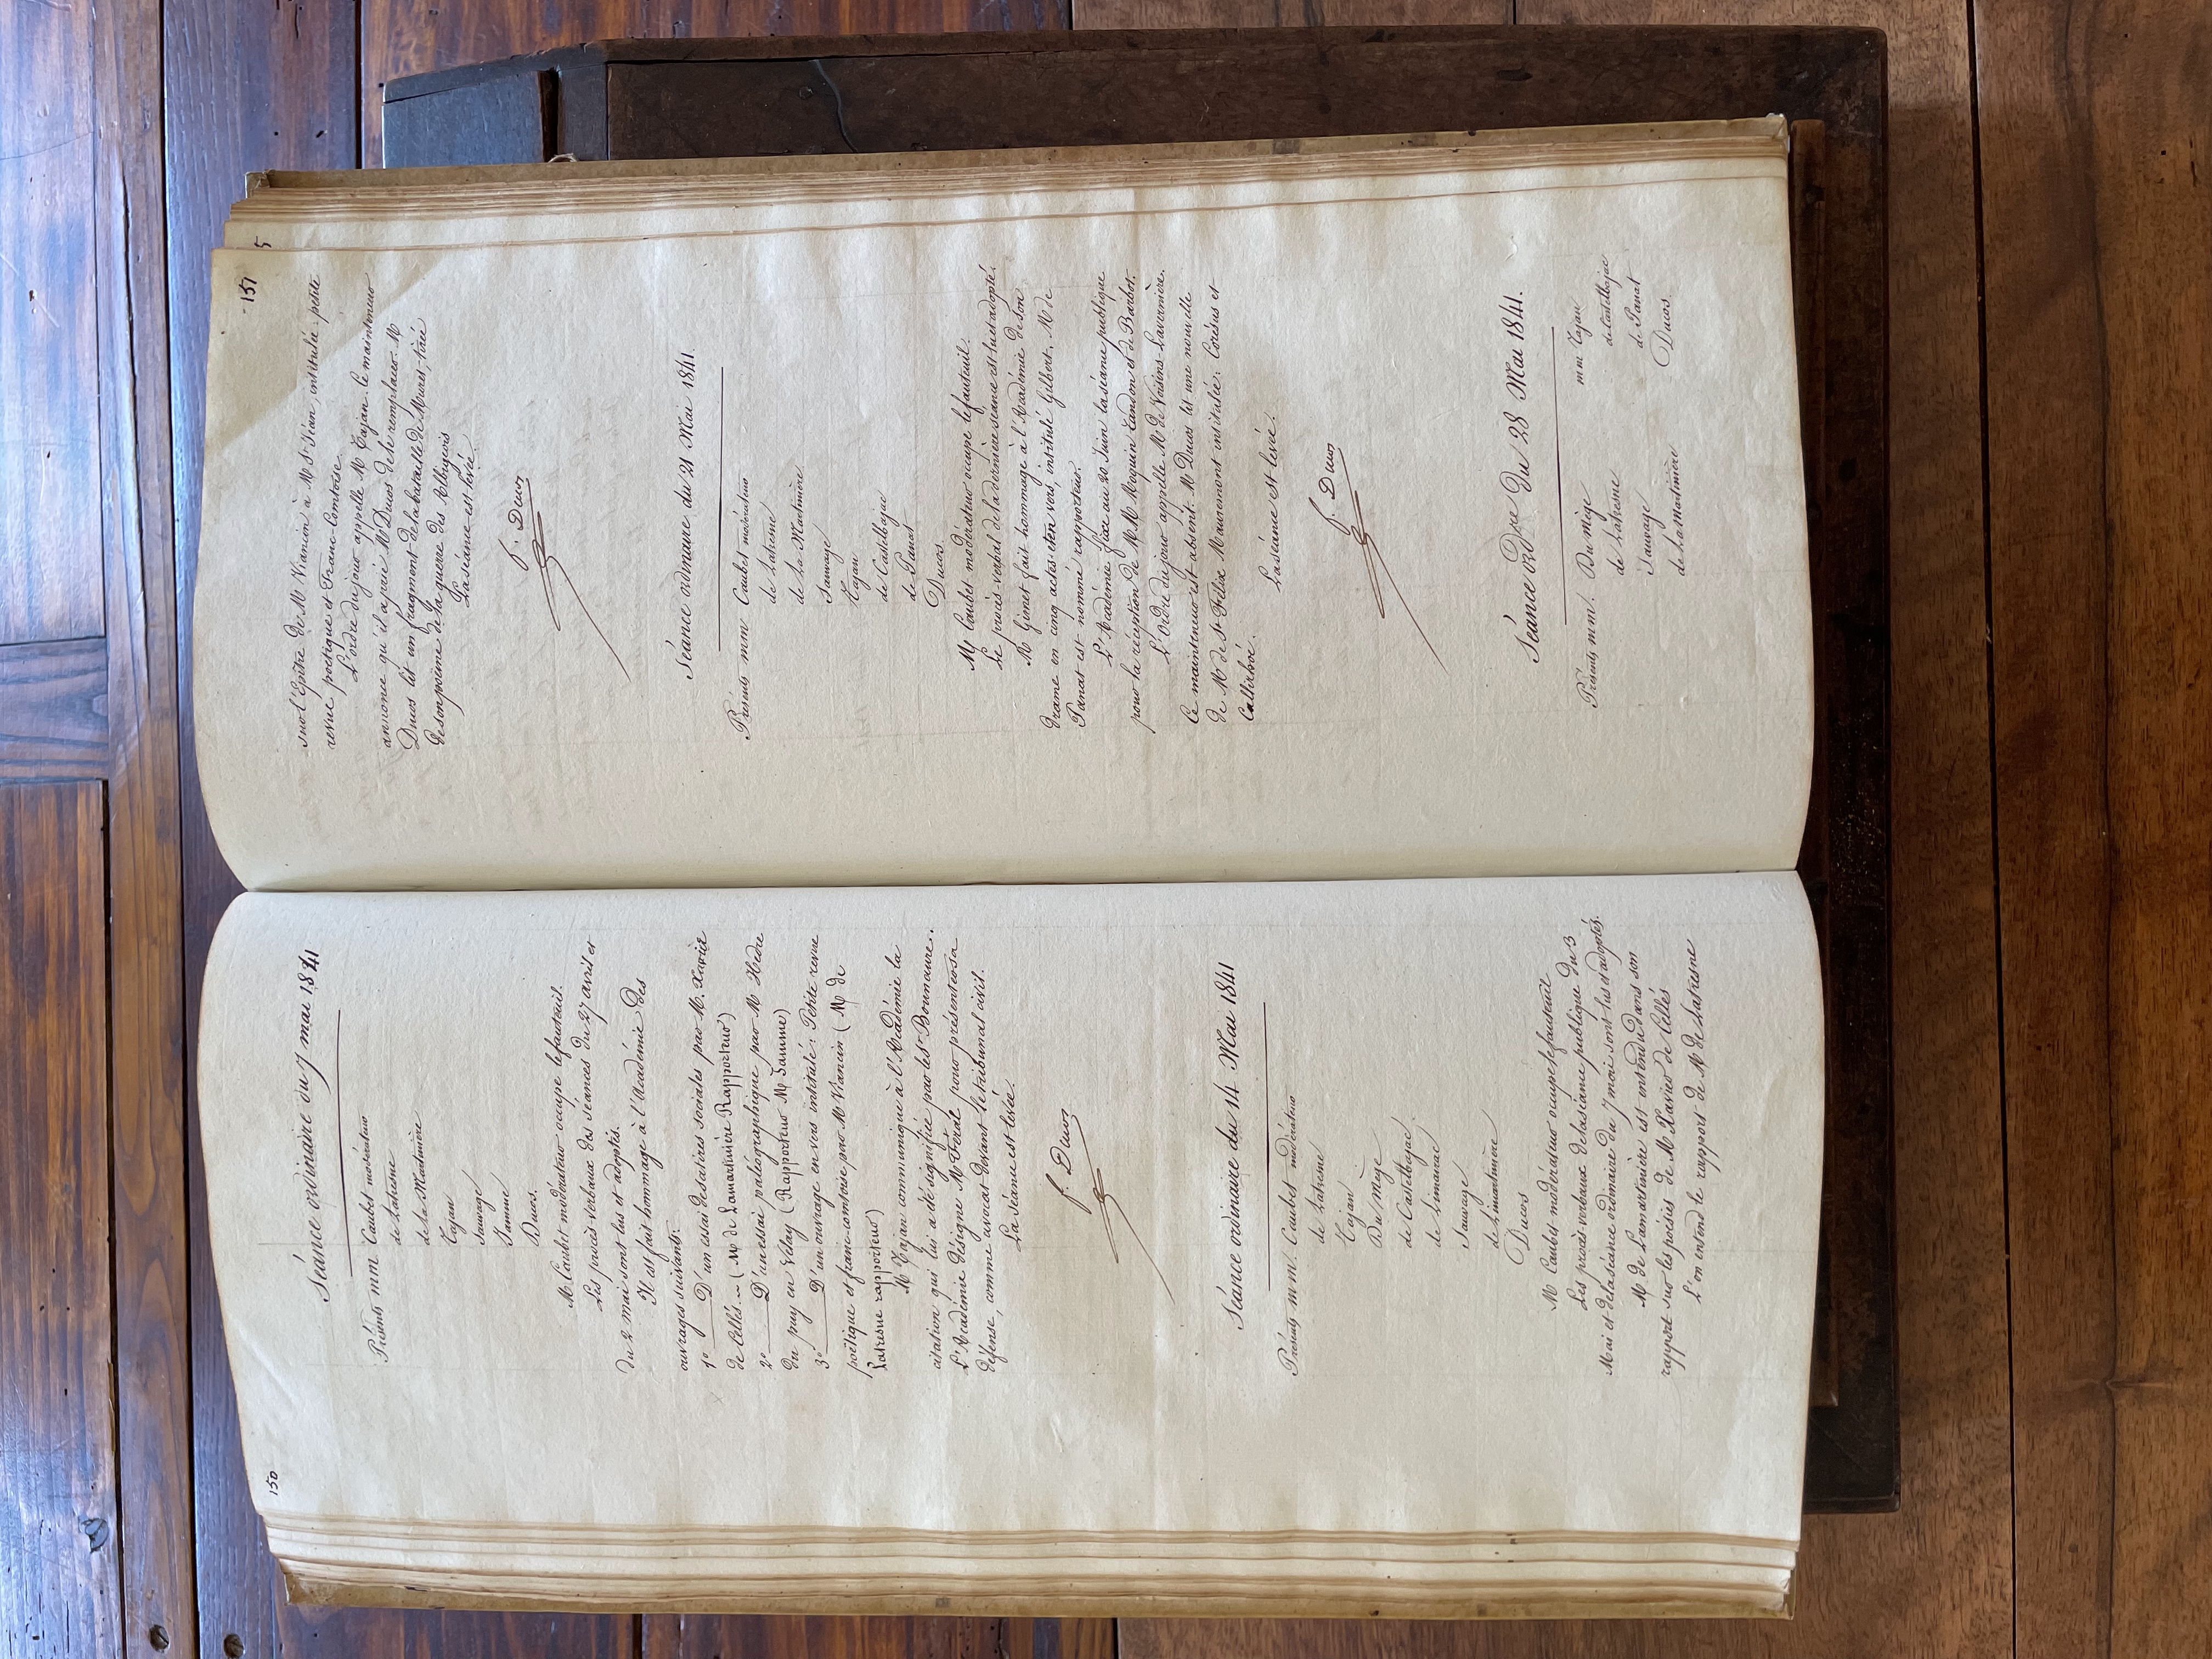 150
Séance ordinaire du 7 mai 1841
Présents mm Caubet modérateur
de Latresne
de la Martinière
Tajan
Sauvage
Jamme
Ducos.
M. Caubet modérateur occupe le fauteuil.
Les procès-verbaux des séances du 27 avril et
du 2 mai sont lus et adoptés.
Il est fait hommage à l'Académie des
ouvrages suivants:
1° D'un essai de satires sociales par M. Xavier
de Cellés. — (M de Lamartinière Rapporteur)
2° D'un essai paléographique par M Hedre
du puy en Velay (Rapporteur M Jamme)
3° D'un ouvrage en vers intitulé: Petite revue
poëtique et franc-comtoise par M Viancin (M de
Latresne rapporteur)
M Tajan communique à l'Académie la
citation qui lui a été signifiée par les Bonnaure.
L'Académie désigne M Féral pour présenter sa
défense, comme avocat devant le tribunal civil.
La séance est levée.
f. Ducos
Séance ordinaire du 14 Mai 1841
Présents mm. Caubet modérateur
de Latresne
Tajan
Du Mège
de Castelbajac
de Limairac
Sauvage
de Limartinière
Ducos
M Caubet modérateur occupe le fauteuil
Les procès-verbaux de la séance publique du 3
Mai et de la séance ordinaire du 7 mai sont lus et adoptés.
M de Lamartinière est entendu dans son
rapport sur les poésies de M Xavier de Cellés
L'on entend le rapport de M de Latresne
151
5
sur l'Epître de M Viancin à M St Jean, intitulée: petite
revue poëtique et Franc-Comtoise.
L'ordre du jour appelle M Tajan. Ce mainteneur
annonce qu'il a prié M Ducos de le remplacer. M
Ducos lit un fragment de la bataille de Muret, tirée
de son poëme de la guerre des Albigeois
La séance est levée
f. Ducos
Séance ordinaire du 21 Mai 1841.
Présents mm Caubet modérateur
de Latresne
de La Martinière
Sauvage
Tajan
de Castelbajac
de Panat
Ducos.
M Caubet modérateur occupe le fauteuil.
Le procès-verbal de la dernière séance est lu et adopté.
M Ginet fait hommage à l'Académie de son
drame en cinq actes et en vers, intitulé Gilbert. M de
Panat est nommé rapporteur.
L'Académie fixe au 20 Juin la séance publique
pour la réception de MM Moquin Tandon et de Barbot.
L'Ordre du jour appelle M de Voisins-Lavernière.
Ce mainteneur est absent. M Ducos lit une nouvelle
de M de St Félix Mauremont intitulée: Corésus et
Callirhoé.
La séance est levée.
f. Ducos
Séance ordre du 28 Mai 1841.
Présents mm. Du Mège
de Latresne
Sauvage
de La Martinière
mm Tajan
de Castelbajac
de Panat
Ducos.